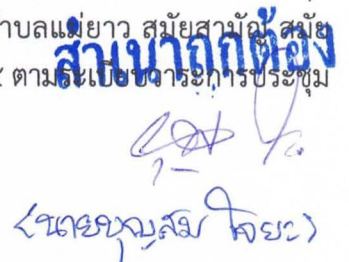 าบลแม่ยาว สมัยสามัญ สมัย
สำเนาถูกต้อง
ตามระเบียบวาระการประชุม
(นายบุญสม ใจยะ)